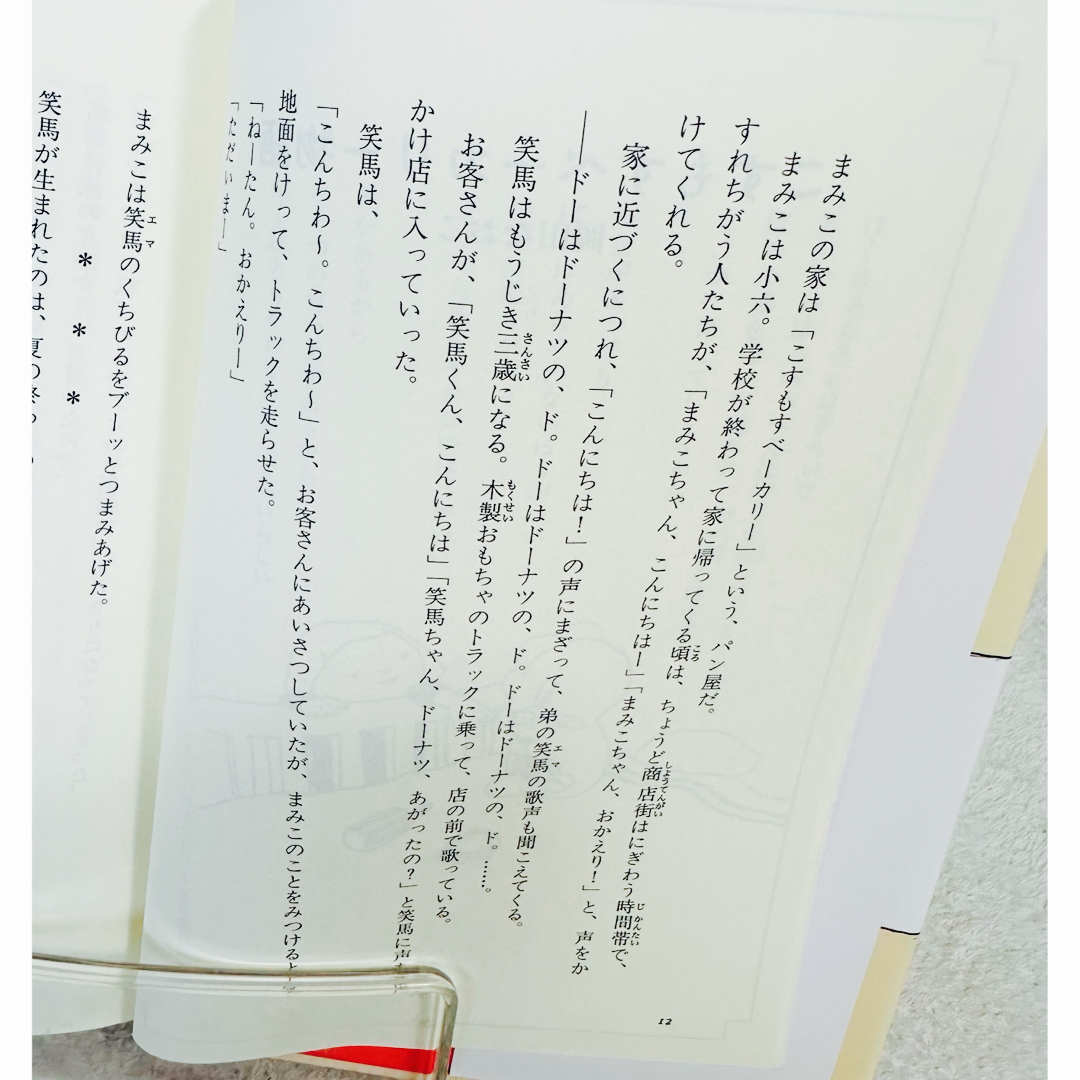 まみこの家は「こすもすベーカリー」という、パン屋だ。
ころ
しょうてんがい
じかんたい
まみこは小六。学校が終わって家に帰ってくる頃は、ちょうど商店街はにぎわう時間帯で、
すれちがう人たちが、「まみこちゃん、こんにちはー」「まみこちゃん、おかえり！」と、声をか
けてくれる。
エマ
家に近づくにつれ、「こんにちは！」の声にまざって、弟の笑馬の歌声も聞こえてくる。
――ドーはドーナツの、ド。ドーはドーナツの、ド。ドーはドーナツの、ド。……。
さんさい
もくせい
笑馬はもうじき三歳になる。木製おもちゃのトラックに乗って、店の前で歌っている。
お客さんが、「笑馬くん、こんにちは」「笑馬ちゃん、ドーナツ、あがったの？」と笑馬に声を
かけ店に入っていった。
笑馬は、
「こんちわ～。こんちわ～」と、お客さんにあいさつしていたが、まみこのことをみつけると
地面をけって、トラックを走らせた。
「ねーたん。おかえりー」
「ただいまー」
12
エマ
まみこは笑馬のくちびるをブーッとつまみあげた。
＊ ＊ ＊
笑馬が生まれたのは、夏の終